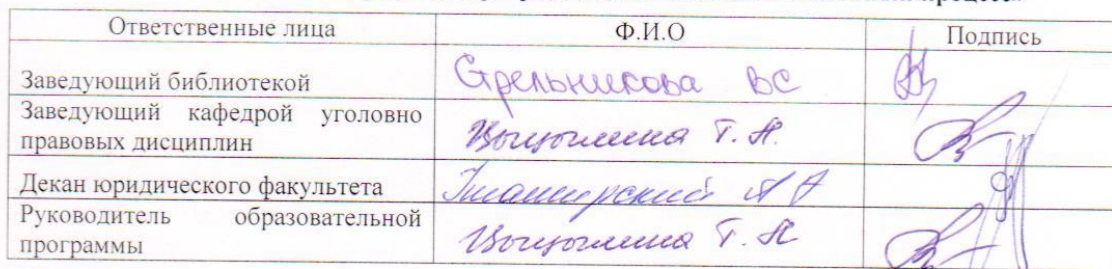 процесс»
Ответственные лица Ф.И.О Подпись
Заведующий библиотекой Стрельникова ВС
Заведующий кафедрой уголовно
правовых дисциплин Т. Н.
Декан юридического факультета
Руководитель образовательной
программы Т. Н